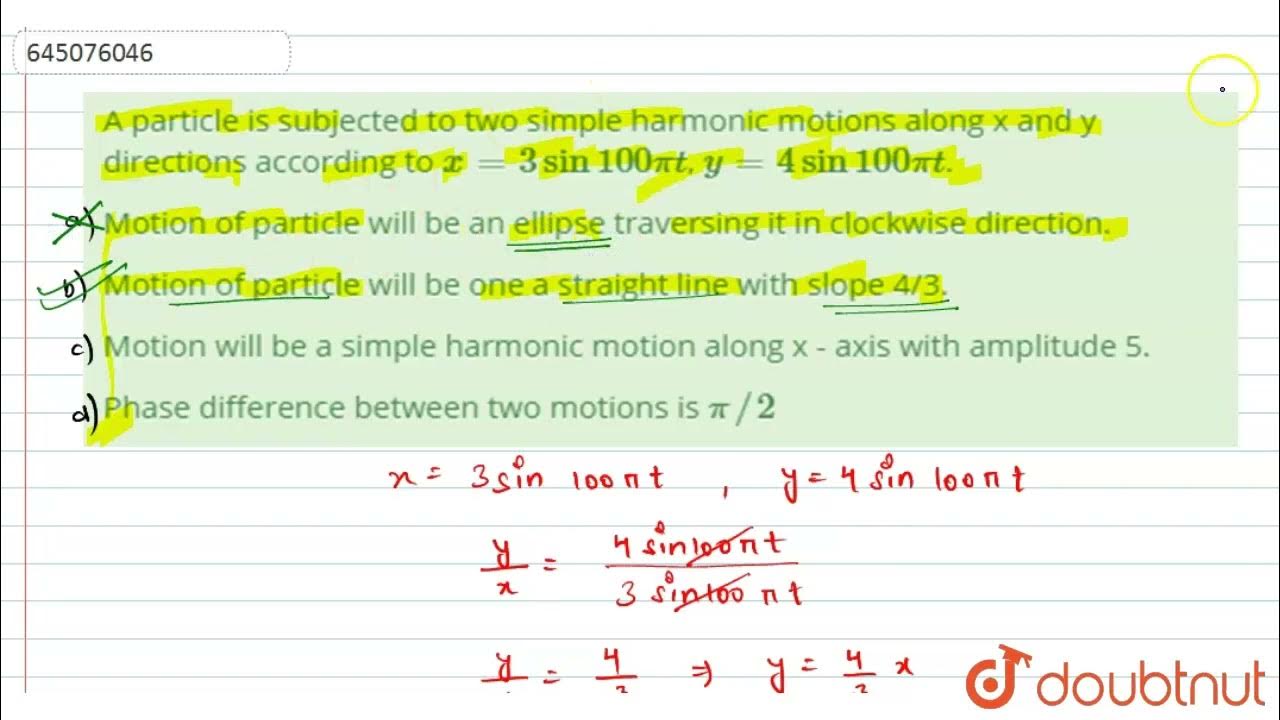 645076046
A particle is subjected to two simple harmonic motions along x and y
directions according to x = 3 sin 100πt, y = 4 sin 100πt.
a) Motion of particle will be an ellipse traversing it in clockwise direction.
b) Motion of particle will be one a straight line with slope 4/3.
c) Motion will be a simple harmonic motion along x - axis with amplitude 5.
d) Phase difference between two motions is π/2
x = 3 sin 100 π t , y = 4 sin 100 π t
y/x = 4 sin 100 π t / 3 sin 100 π t
y = 4 ⇒ y = 4 x
doubtnut